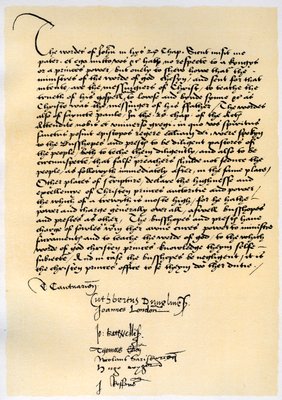 The wordes of John in hys 20 Chap. Sicut misit me
pater, et ego mitto vos &c hath no respecte to a kynges
or a princes power, but onely to shew how that the
ministres of the worde of god chosyn, and sent for that
intente, are the messyngers of Christe, to teache the
trueth of his gospell, to lowse and bynd synne &c as
Christe was the messynger of his father. The wordes
also of saynte paule in the 20 chap. of the Actes
Attendite vobis et universo gregi, in quo vos spiritus
sanctus posuit episcopos regere ecclesiam dei, were spokyn
to the Bisshoppes and prestes to be diligent pastores of
the people, both to teche them diligently, and also to be
circumspecte, that false preachers shulde not seduce the
people, as followyth immediately after, in the same place.
Other places of scripture declare the highnesse and
excellency of Christen princes autorite and power,
the which of a trewyth is moste high, for he hathe
power and charge generally over all, aswell bisshoppes
and prestes as other. The bisshopes and prestes have
charge of sowles within ther awne cures, power to ministre
sacramentes and to teache the worde of god, to the whiche
worde of god christen princes knowledge themselfes
subiecte, And in case the bisshopes be negligent, it is
the christen princes office to se them doo their dutie.
T. Cantuarien
Cuthbertus Dunelmens
Joannes London
Jo. Batwellen
Thomas Elien
Nicolaus Sarisburien
Hugo Wygorn
J Roffens